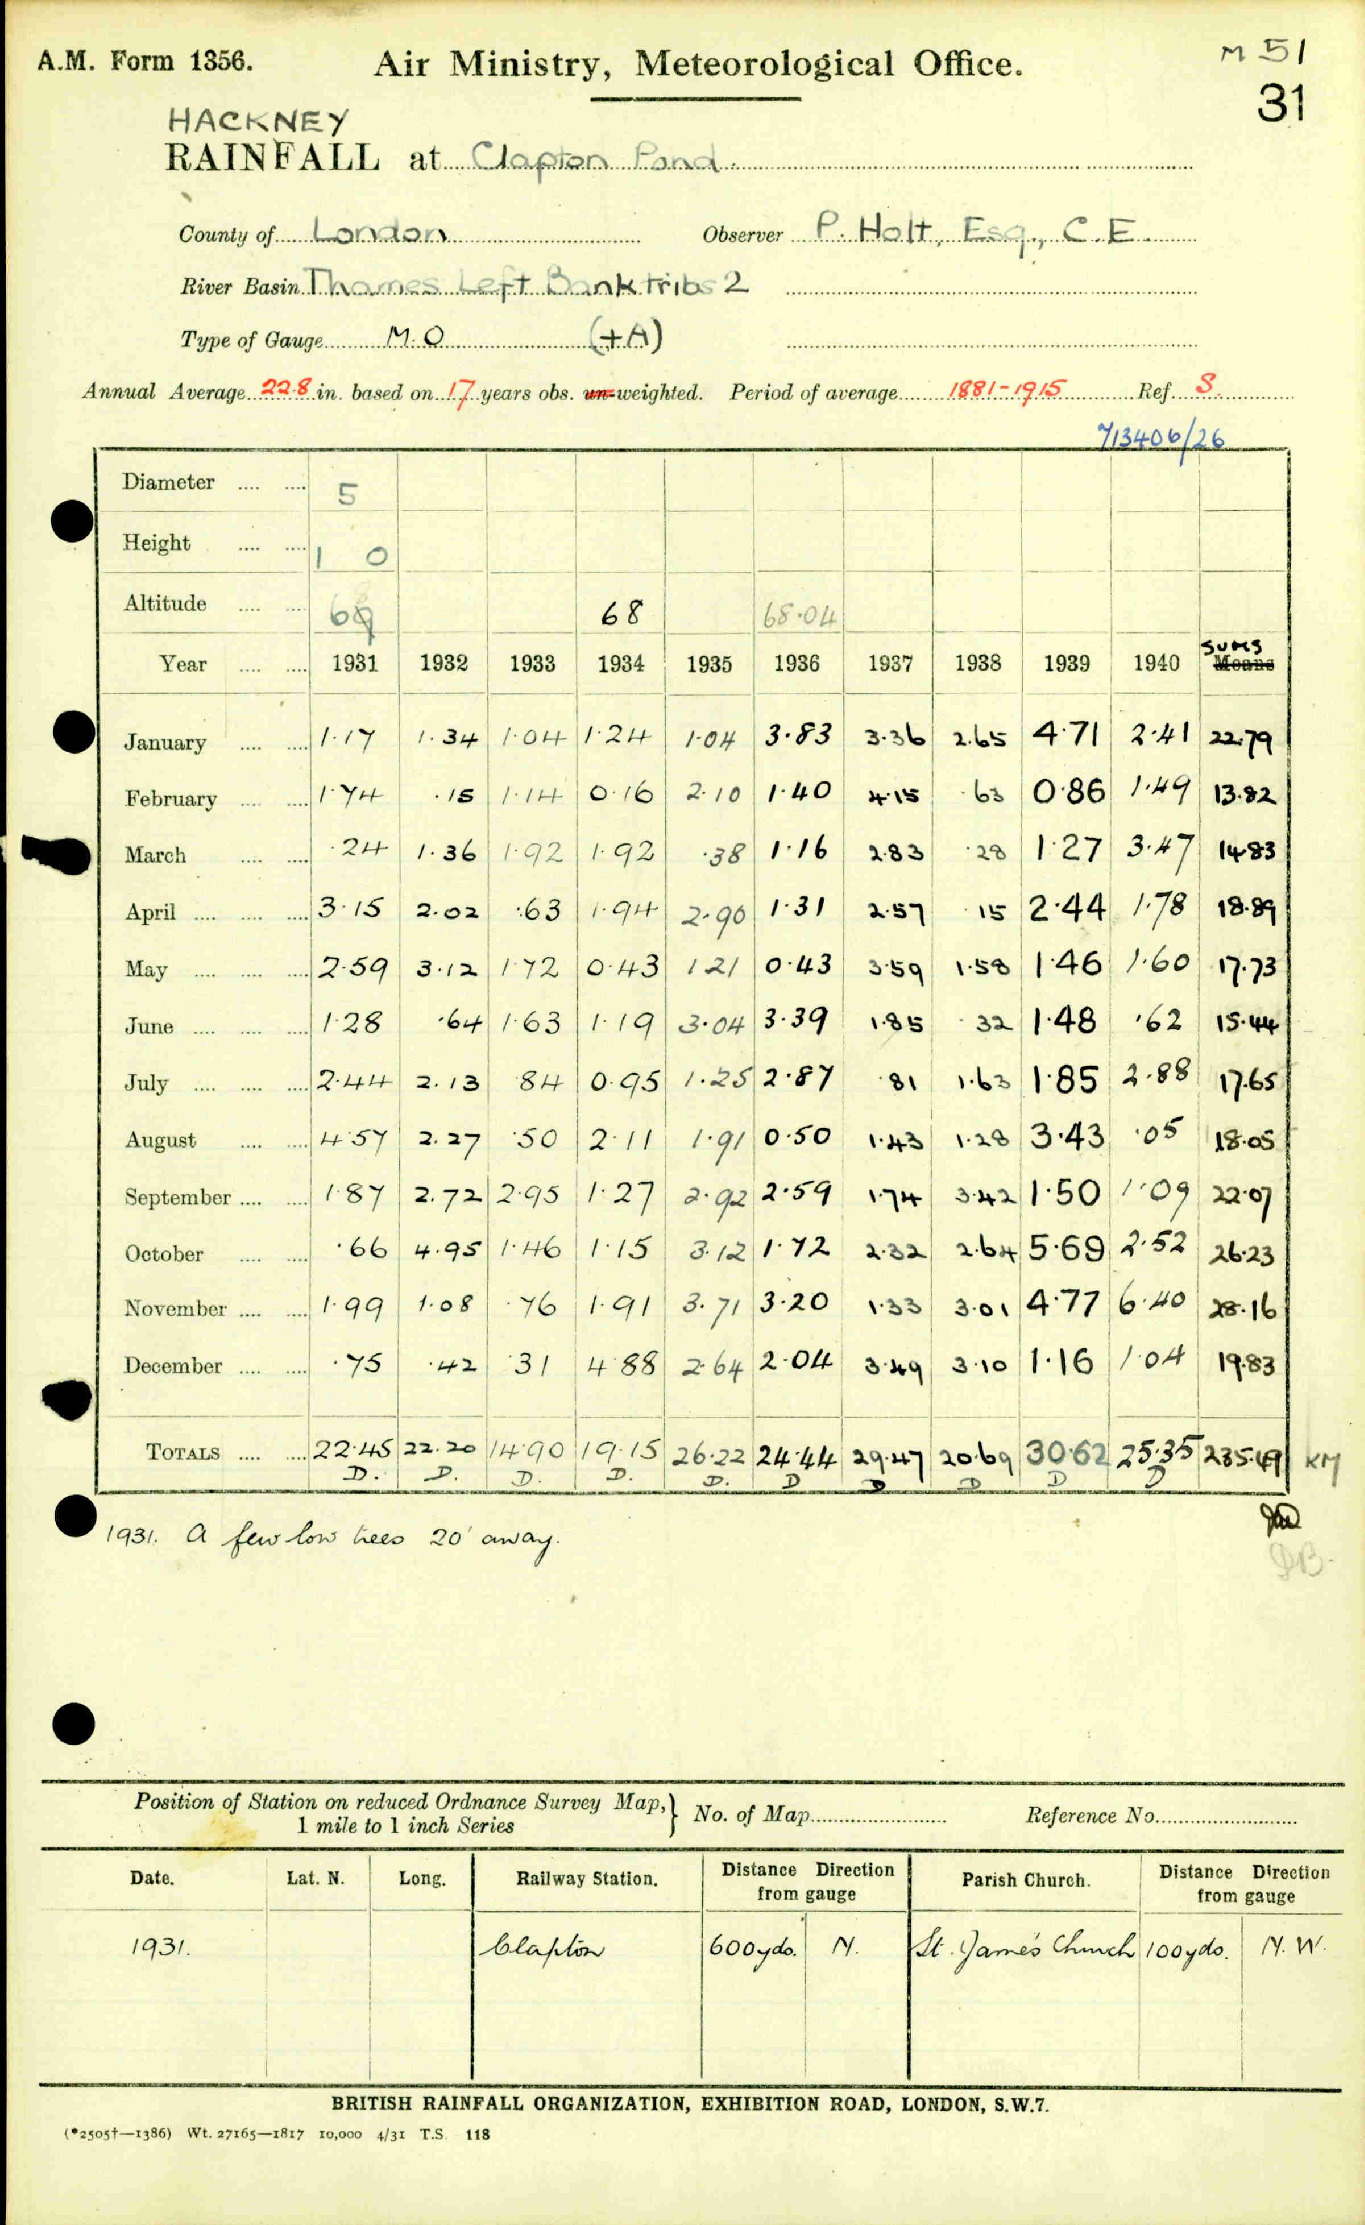 A.M. Form 1356. Air Ministry, Meteorological Office. M 51
31
HACKNEY
RAINFALL at Clapton Pond.
County of London Observer P. Holt, Esq., C.E.
River Basin Thames Left Bank tribs 2
Type of Gauge M.O (+A)
Annual Average 22.8 in. based on 17 years obs. un-weighted. Period of average 1881-1915 Ref. S.
713406/26
Diameter 5
Height 1 0
Altitude 68 68.04
SUMS
Year 1931 1932 1933 1934 1935 1936 1937 1938 1939 1940 Means
January 1.17 1.34 1.04 1.24 1.04 3.83 3.36 2.65 4.71 2.41 22.79
February 1.74 .15 1.14 0.16 2.10 1.40 4.15 .63 0.86 1.49 13.82
March .24 1.36 1.92 1.92 .38 1.16 2.83 .28 1.27 3.47 14.83
April 3.15 2.02 .63 1.94 2.90 1.31 2.57 .15 2.44 1.78 18.89
May 2.59 3.12 1.72 0.43 1.21 0.43 3.59 1.58 1.46 1.60 17.73
June 1.28 .64 1.63 1.19 3.04 3.39 1.85 .32 1.48 .62 15.44
July 2.44 2.13 .84 0.95 1.25 2.87 .81 1.63 1.85 2.88 17.65
August 4.57 2.27 .50 2.11 1.91 0.50 1.43 1.28 3.43 .05 18.05
September 1.87 2.72 2.95 1.27 2.92 2.59 1.74 3.42 1.50 1.09 22.07
October .66 4.95 1.46 1.15 3.12 1.72 2.32 2.64 5.69 2.52 26.23
November 1.99 1.08 .76 1.91 3.71 3.20 1.33 3.01 4.77 6.40 28.16
December .75 .42 .31 4.88 2.64 2.04 3.49 3.10 1.16 1.04 19.83
TOTALS 22.45 22.20 14.90 19.15 26.22 24.44 29.47 20.69 30.62 25.35 235.49 KM
D. D. D. D. D. D D D D D
1931. A few low trees 20' away.
DB.
Position of Station on reduced Ordnance Survey Map, 1 mile to 1 inch Series } No. of Map Reference No.
Date. Lat. N. Long. Railway Station. Distance Direction from gauge Parish Church. Distance Direction from gauge
1931. Clapton 600 yds. N. St. James's Church 100 yds. N.W.
BRITISH RAINFALL ORGANIZATION, EXHIBITION ROAD, LONDON, S.W.7.
(*2505†—1386) Wt. 27165—1817 10,000 4/31 T.S. 118